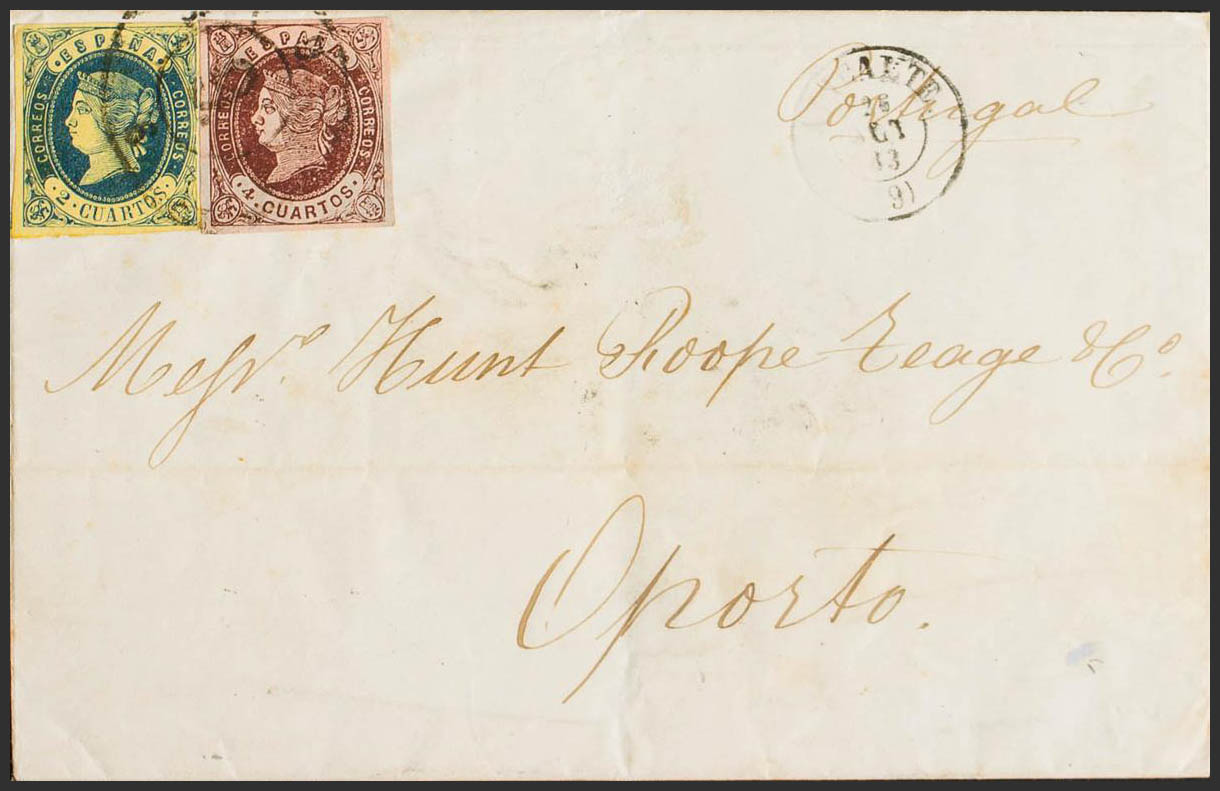 ESPAÑA
CORREOS CORREOS
2 CUARTOS
ESPAÑA
CORREOS CORREOS
4 CUARTOS
Portugal
Messrs. Hunt Roope Teage & Co.
Oporto.